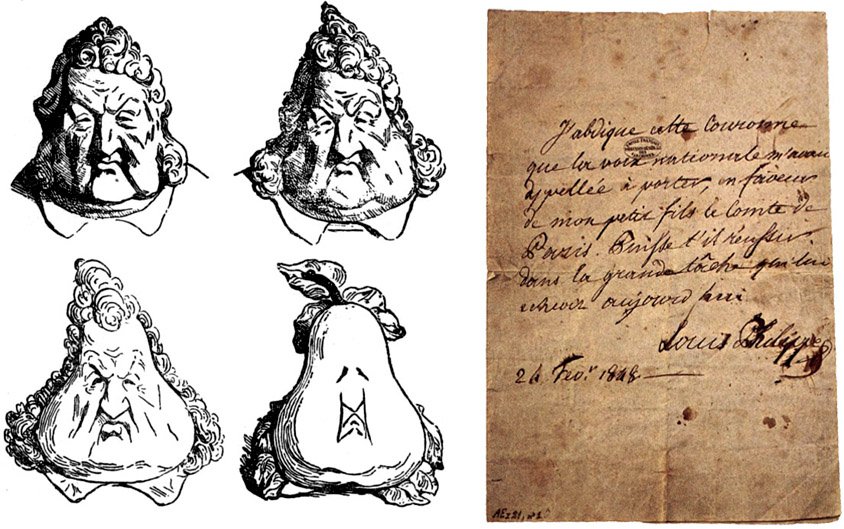 J'abdique cette Couronne
que la voix nationale m'avait
appellée à porter, en faveur
de mon petit fils le Comte de
Paris. Puisse t'il réussir
dans la grande tâche qui lui
échoit aujourd'hui
Louis Philippe
24 Fev.r 1848
AE I 21, n° 1